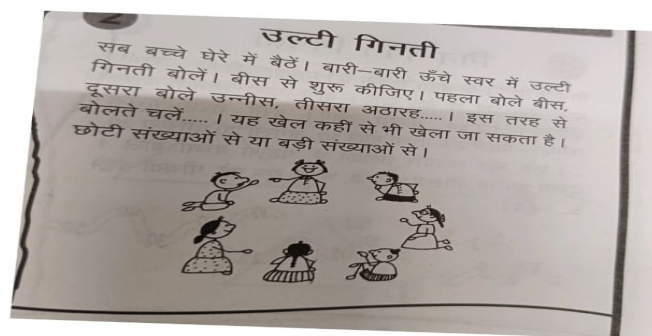 2
उल्टी गिनती
सब बच्चे घेरे में बैठें। बारी–बारी ऊँचे स्वर में उल्टी
गिनती बोलें। बीस से शुरू कीजिए। पहला बोले बीस,
दूसरा बोले उन्नीस, तीसरा अठारह.....। इस तरह से
बोलते चलें.....। यह खेल कहीं से भी खेला जा सकता है।
छोटी संख्याओं से या बड़ी संख्याओं से।